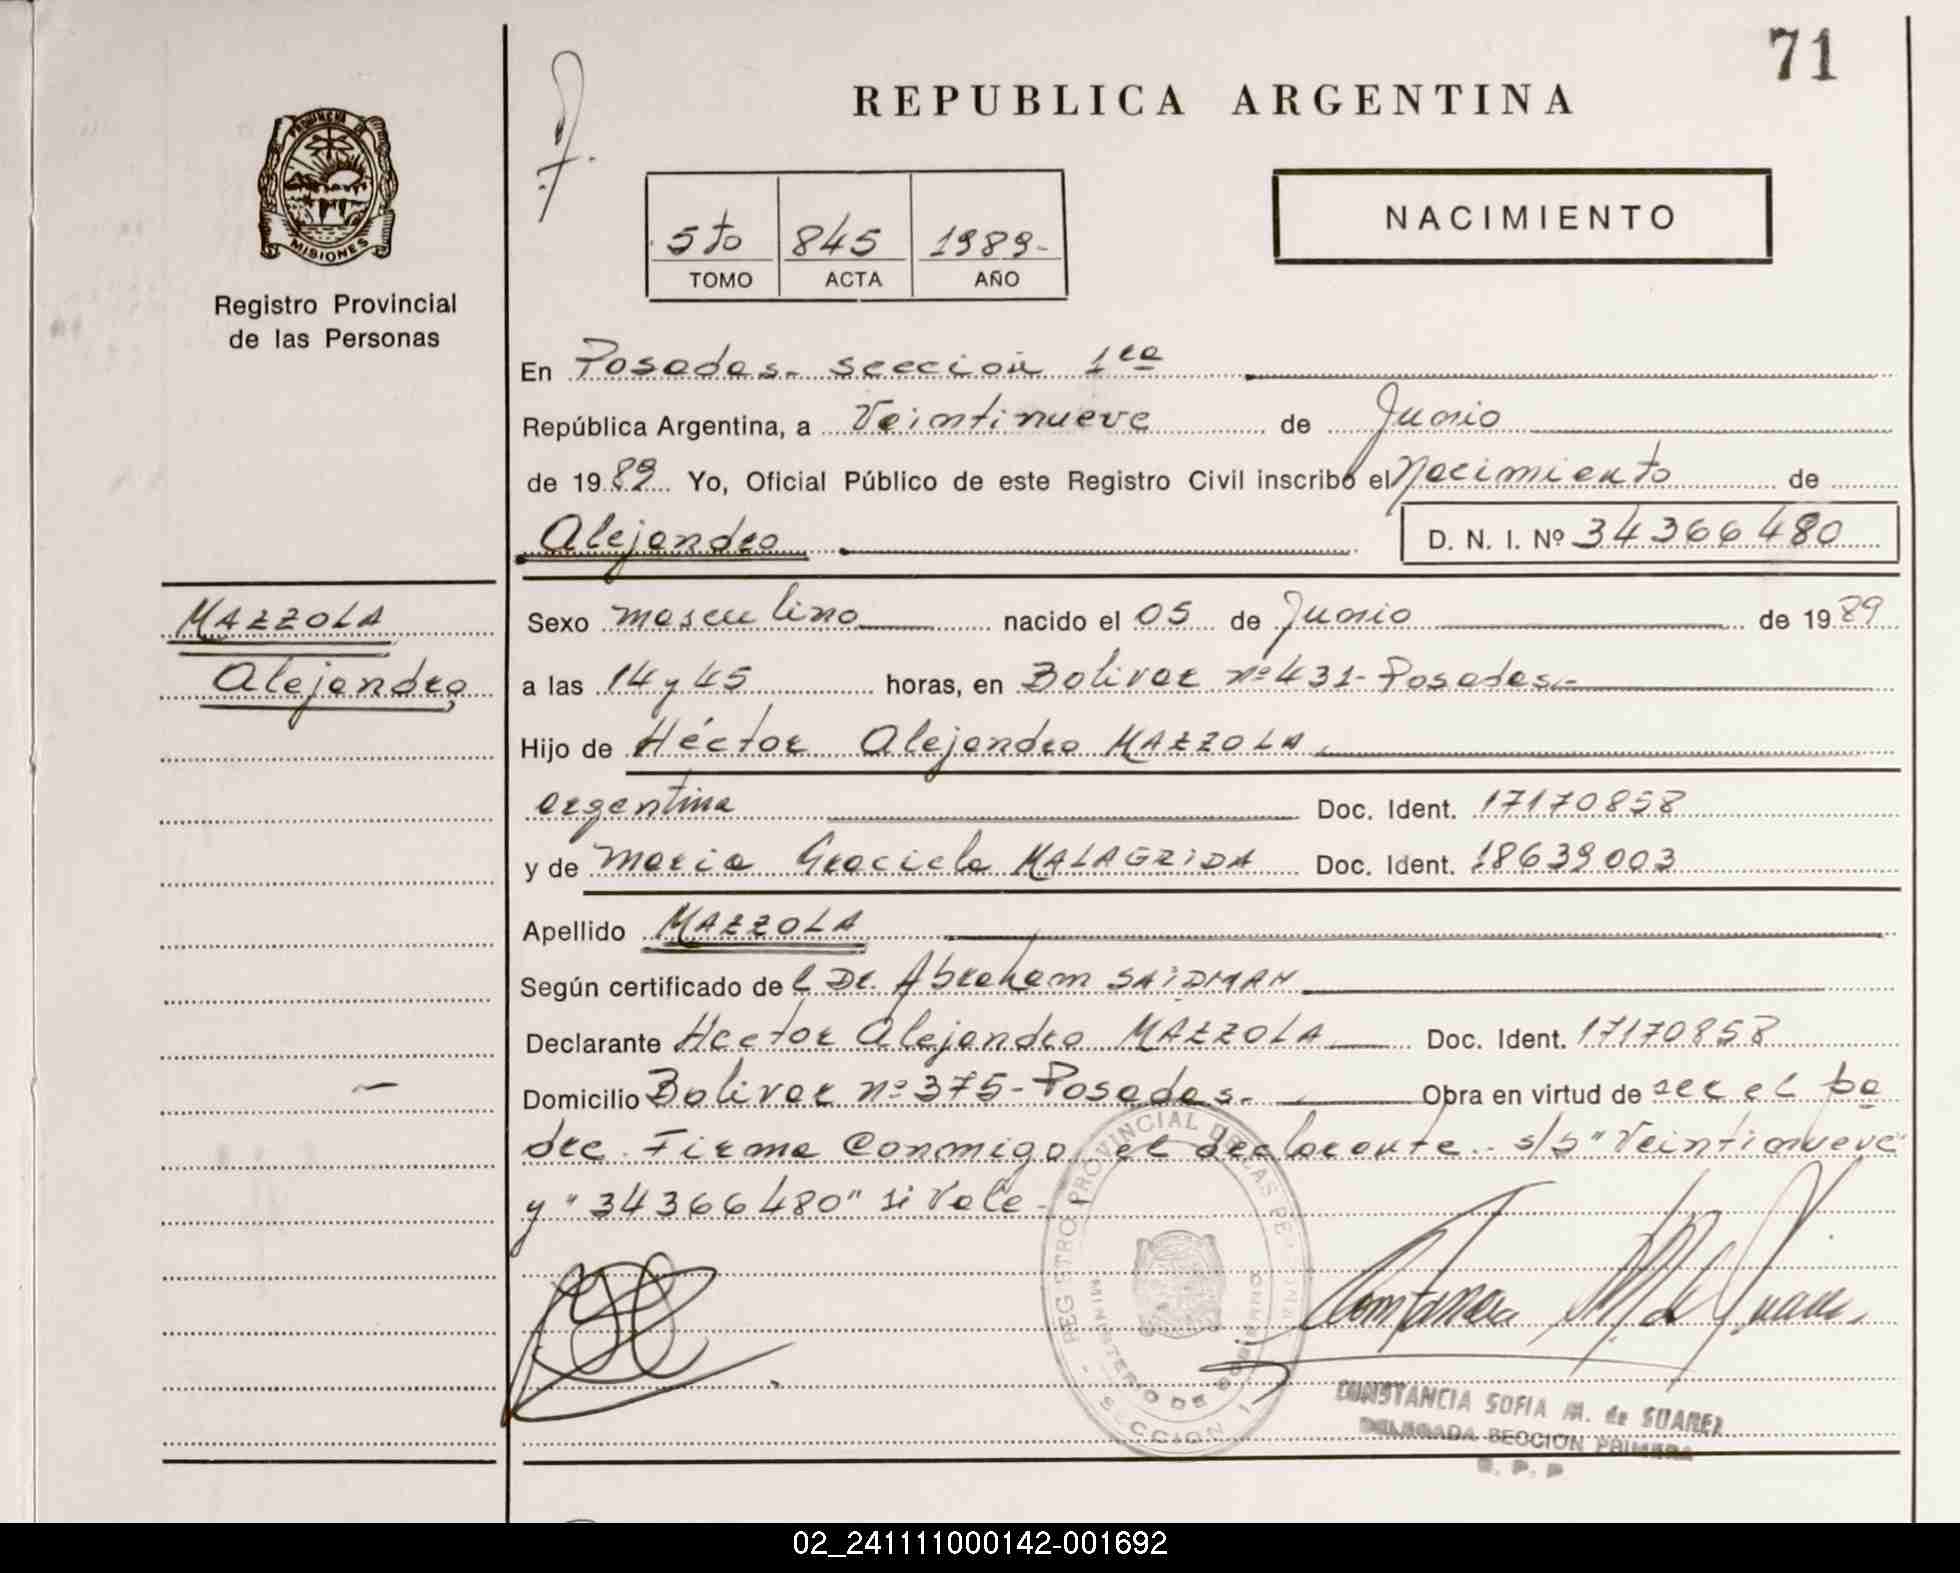 71
REPUBLICA ARGENTINA
PROVINCIA DE
MISIONES
Registro Provincial
de las Personas
NACIMIENTO
5to 845 1989-
TOMO ACTA AÑO
En Posadas- sección 1ra
República Argentina, a Veintinueve de Junio
de 1989 Yo, Oficial Público de este Registro Civil inscribo el Nacimiento de
Alejandro D. N. I. Nº 34366480
MAZZOLA
Alejandro
Sexo masculino nacido el 05 de Junio de 1989
a las 14 y 45 horas, en Bolivar nº 431- Posadas.-
Hijo de Héctor Alejandro MAZZOLA
argentina Doc. Ident. 17170858
y de Maria Graciela MALAGRIDA Doc. Ident. 18639003
Apellido MAZZOLA
Según certificado del Dr. Abraham SAIDMAN
Declarante Hector Alejandro MAZZOLA Doc. Ident. 17170858
Domicilio Bolivar nº 375- Posadas. Obra en virtud de ser el pa
dre. Firma Conmigo el declarante.- s/b "Veintinueve"
y "34366480" si Vale-
REGISTRO PROVINCIAL DE LAS PE
MINISTERIO DE GOBIERNO
SECCION 1
Constancia M. de Suarez
CONSTANCIA SOFIA M. de SUAREZ
DELEGADA SECCION PRIMERA
R. P. P
02_241111000142-001692